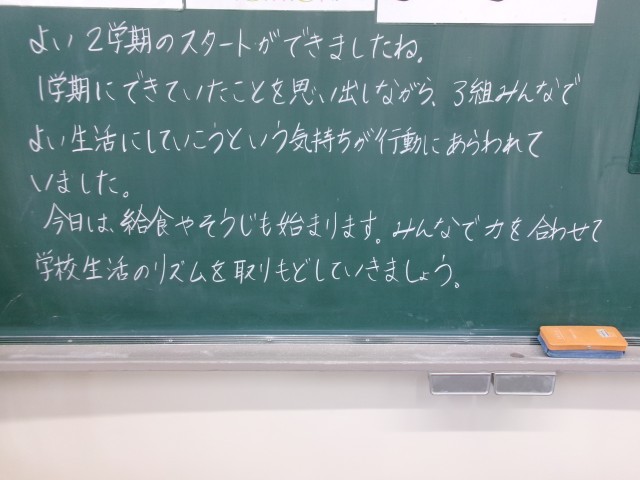 よい2学期のスタートができましたね。
1学期にできていたことを思い出しながら、3組みんなで
よい生活にしていこうという気持ちが行動にあらわれて
いました。
今日は、給食やそうじも始まります。みんなで力を合わせて
学校生活のリズムを取りもどしていきましょう。